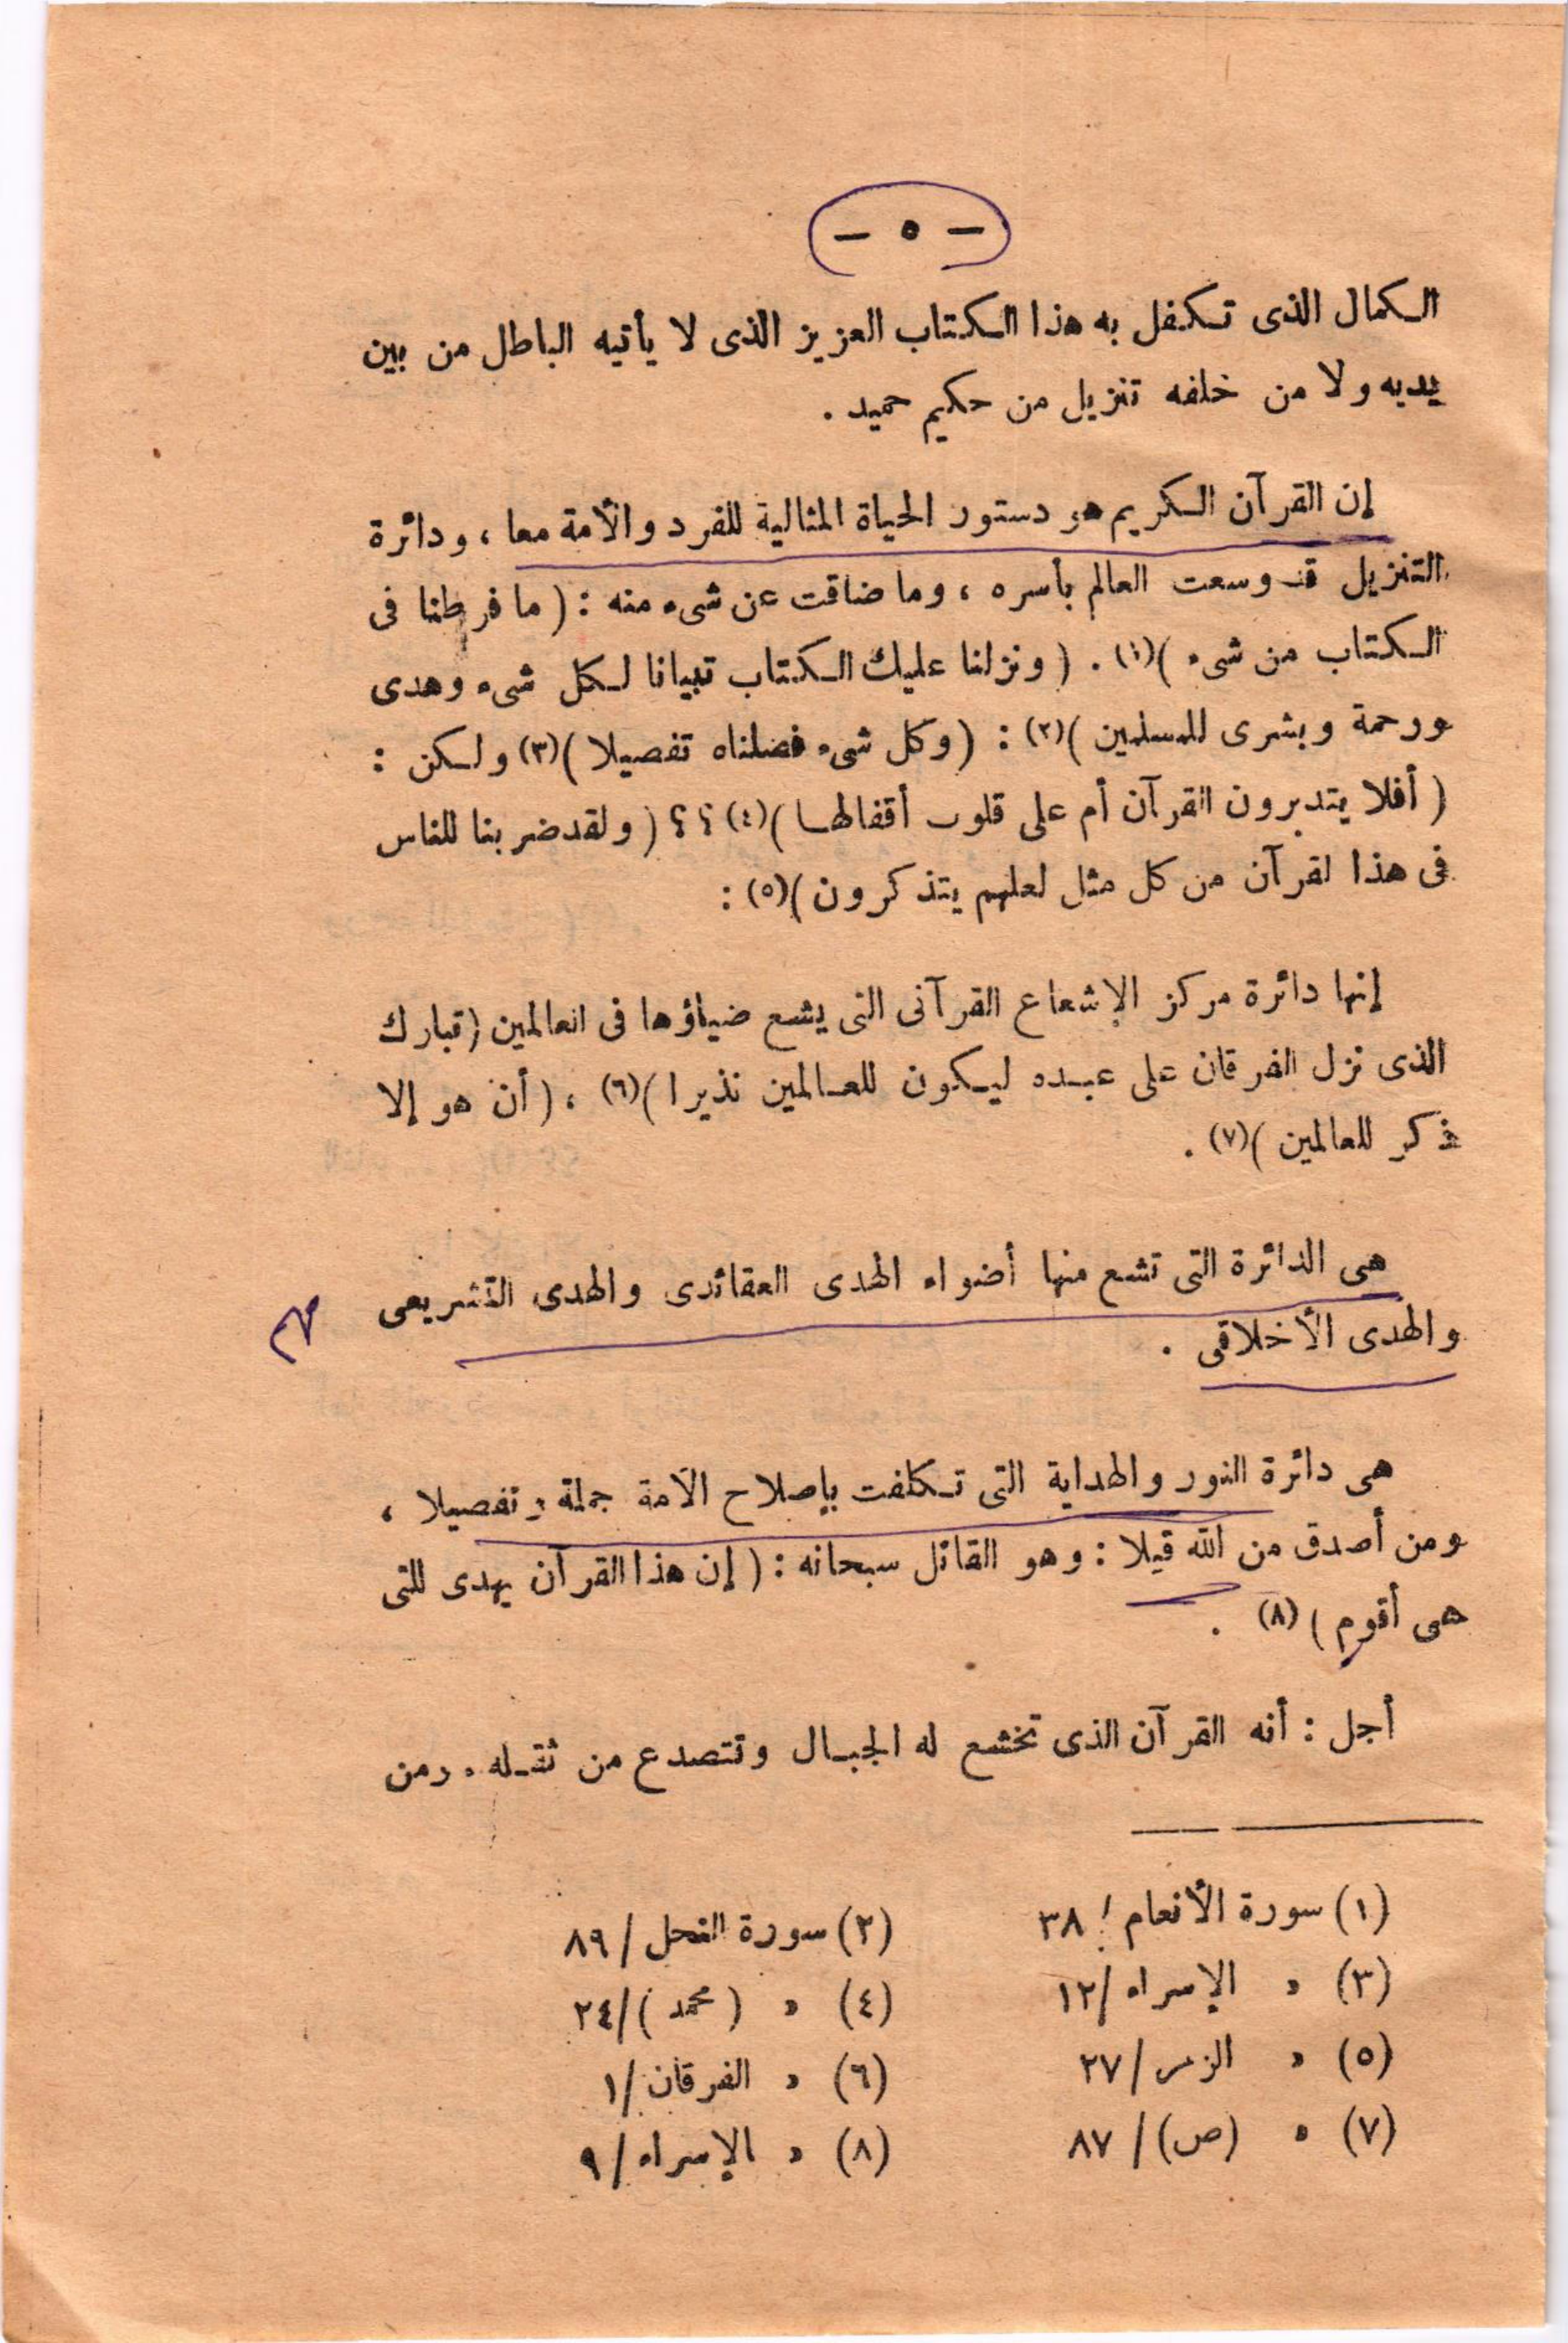 — ٥ —
الكمال الذى تكفل به هذا الكتاب العزيز الذى لا يأتيه الباطل من بين
يديه ولا من خلفه تنزيل من حكيم حميد .
إن القرآن الكريم هو دستور الحياة المثالية للفرد والأمة معا ، ودائرة
التنزيل قد وسعت العالم بأسره ، وما ضاقت عن شىء منه : ( ما فرطنا فى
الكتاب من شىء )(١) . ( ونزلنا عليك الكتاب تبيانا لكل شىء وهدى
ورحمة وبشرى للمسلمين )(٢) : ( وكل شىء فصلناه تفصيلا )(٣) ولكن :
( أفلا يتدبرون القرآن أم على قلوب أقفالها )(٤) ؟ ؟ ( ولقد ضربنا للناس
فى هذا لقرآن من كل مثل لعلهم يتذكرون )(٥) :
إنها دائرة مركز الإشعاع القرآنى التى يشع ضياؤها فى العالمين ( تبارك
الذى نزل الفرقان على عبده ليكون للعالمين نذيرا )(٦) ، ( أن هو إلا
ذكر للعالمين )(٧) .
هى الدائرة التى تشع منها أضواء الهدى العقائدى والهدى التشريعى
والهدى الأخلاقى .
هى دائرة النور والهداية التى تكلفت بإصلاح الأمة جملة وتفصيلا ،
ومن أصدق من الله قيلا : وهو القائل سبحانه : ( إن هذا القرآن يهدى للتى
هى أقوم ) (٨) .
أجل : أنه القرآن الذى تخشع له الجبال وتتصدع من ثقله . ومن
(١) سورة الأنعام / ٣٨ (٢) سورة النحل / ٨٩
(٣) » الإسراء / ١٢ (٤) » ( محمد ) / ٢٤
(٥) » الزمر / ٢٧ (٦) » الفرقان / ١
(٧) » (ص) / ٨٧ (٨) » الإسراء / ٩